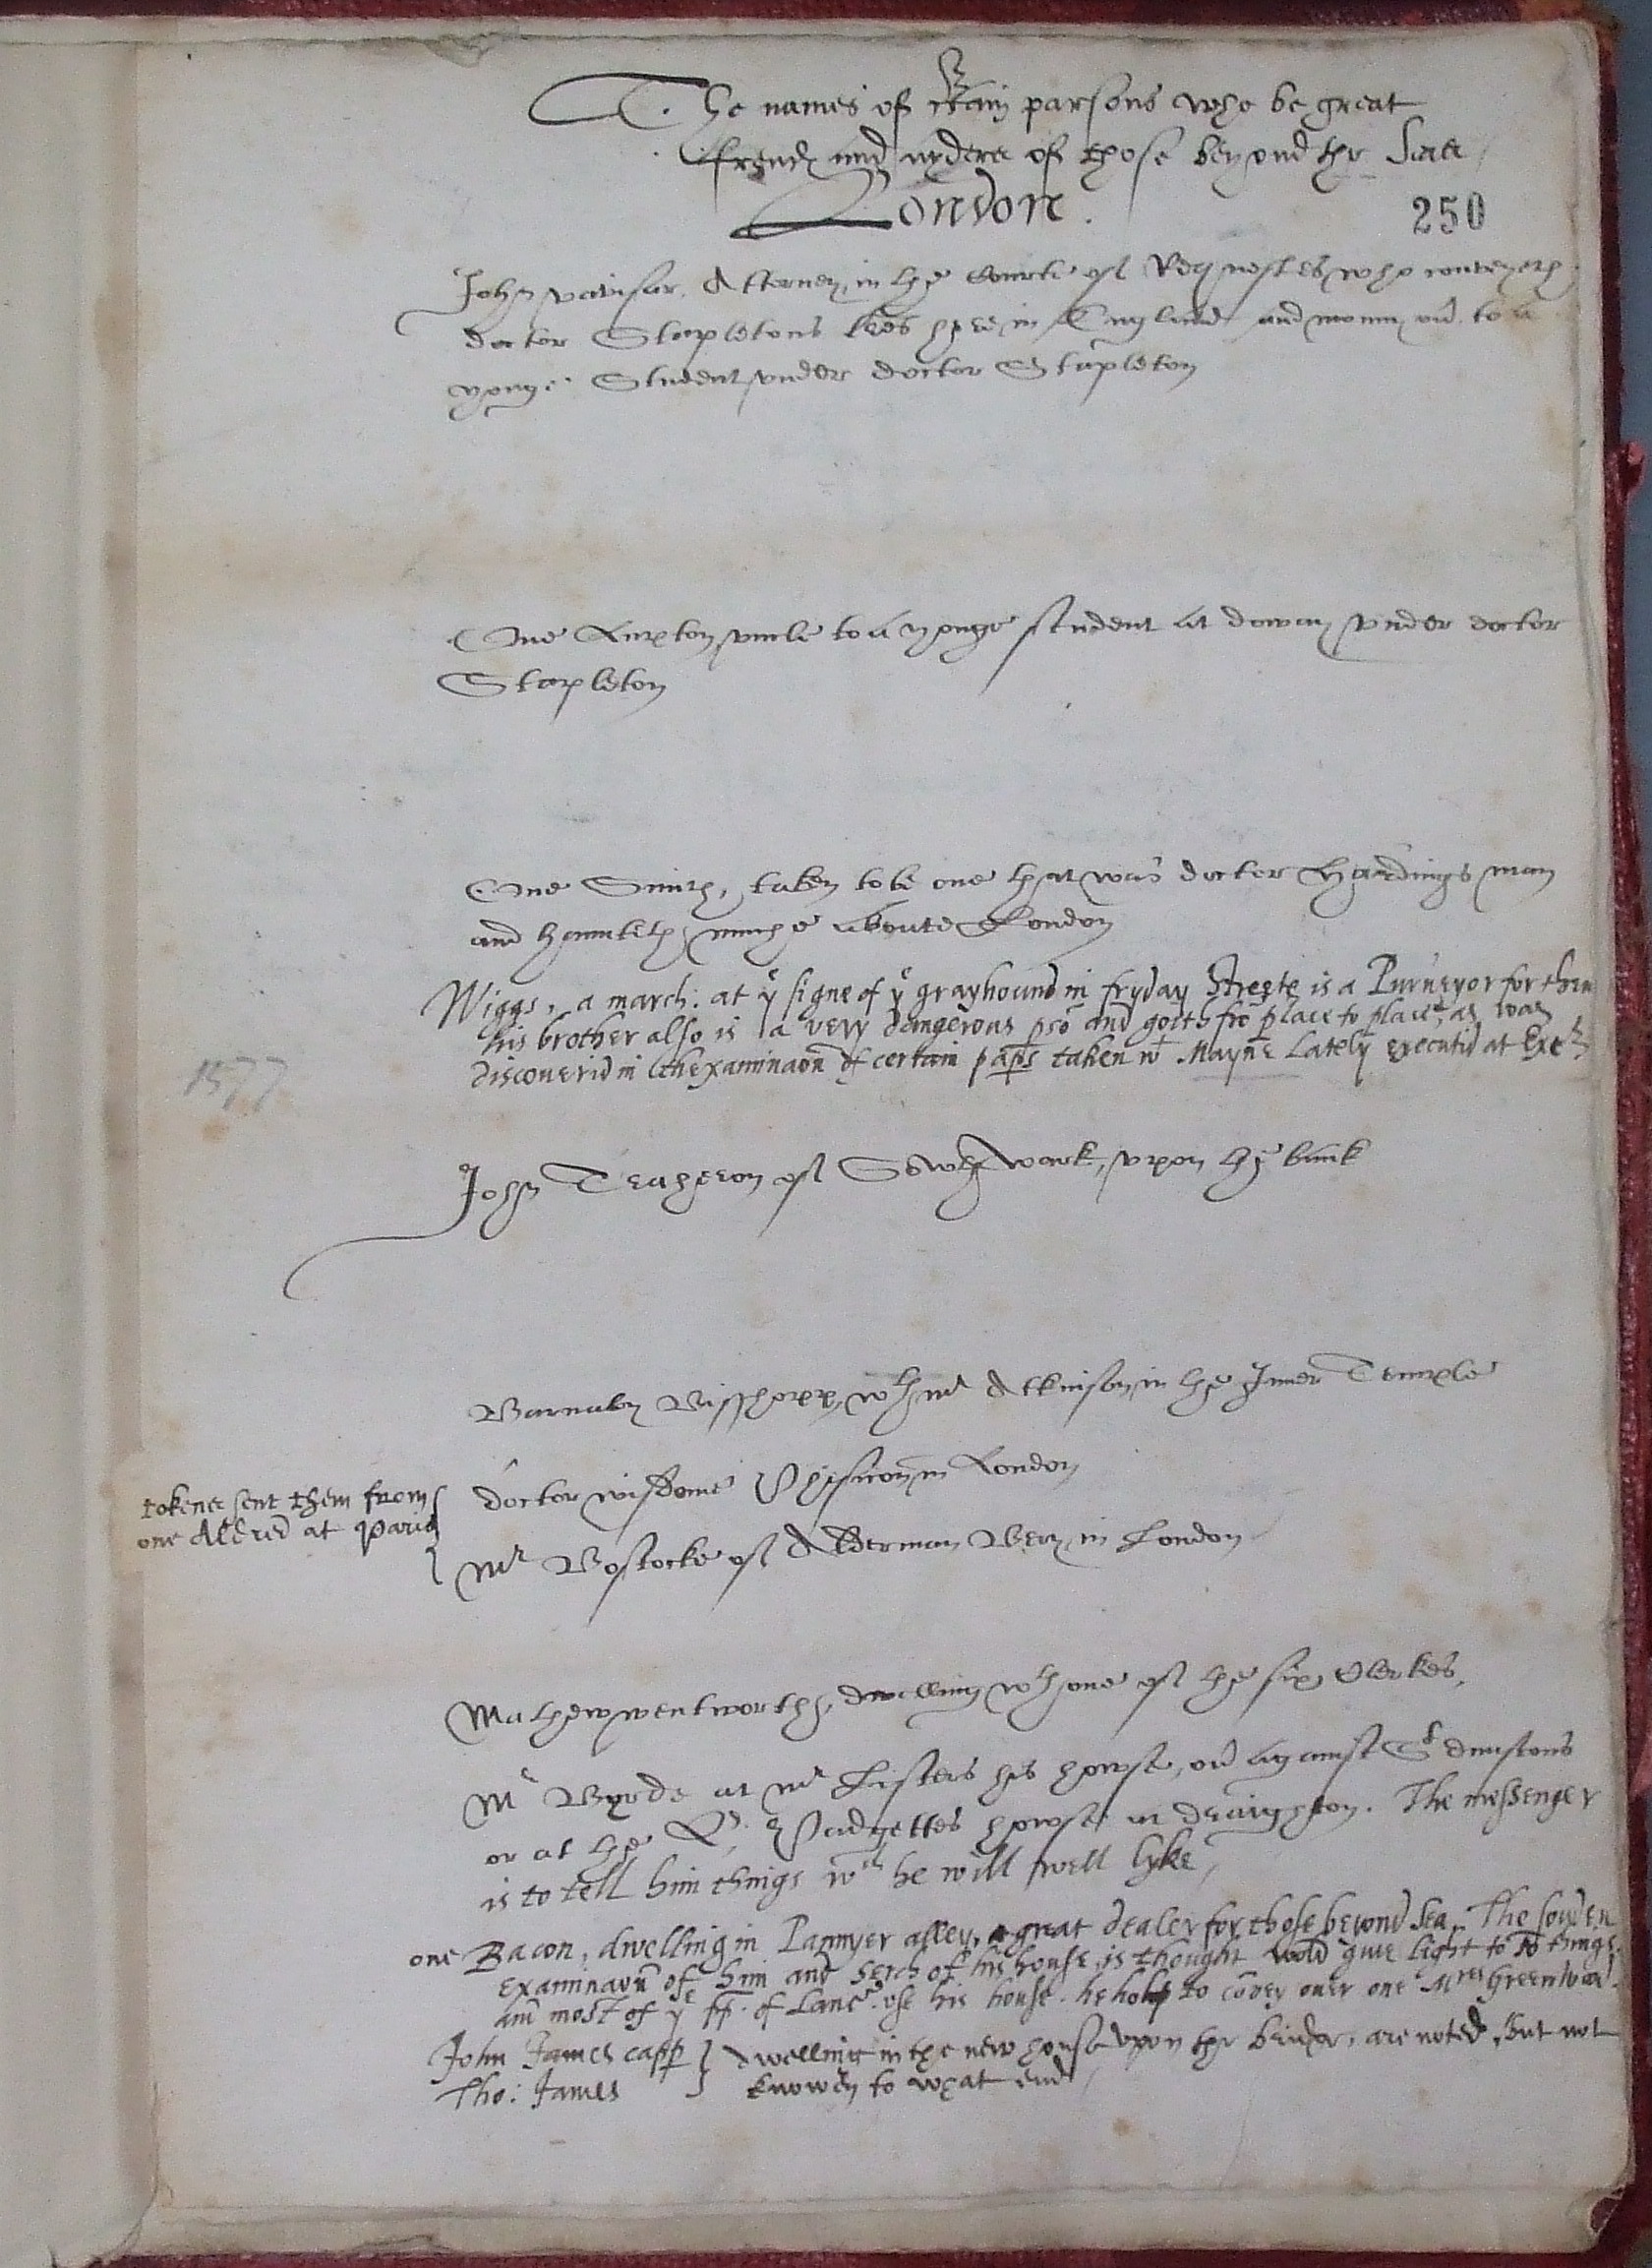 The names of ctain parsons who be great
frends and ayders of those beyond the Seas
London.
250
John vavisar, Attorney in the Courte of Requestes who conveyeth
doctor Stapletons lres here in England and monny ou to a
yonge Student vnder doctor Stapleton
One Lupton vncle to a yonge student at doway vnder doctor
Stapleton
One Smith, taken to be one that was doctor Hardings man
and haunteth muche aboute London
Wiggs, a march: at ye signe of ye grayhound in fryday Streete is a Purueyor for them
his brother also is a very dangerous pso and goeth fro place to place, as was
discouerid in thexaminaon of certain paps taken wt Mayne Lately executid at Exer
1577
John Teacheron of Sowthwark, vpon the bank
Barnaby Bisshopp, wth mr Atkinson in the Inner Temple
tokens sent them from
one Aldred at Paris
doctor wisdome Phisicon in London
Mr Bostocke of Alderman Bery in London
Mathew wentworthe, dwelling wth one of the six Clerkes,
Mr Byrde at mr Listers his howse, ou against St dunstons
or at the L. Padgettes howse at draighton. The messenger
is to tell him things wch he will well lyke
one Bacon, dwelling in Pannyer alley, a great dealer for those beyond Sea. The soden
examinaon of him and serch of his house, is thought wold giue light to things.
and most of ye pp. of Lanc. vse his house. he holp to covey ouer one Mres Greenwod.
John James capp
Tho: James
dwelling in the new house vpon the bridge, are noted, But not
knowen to what end